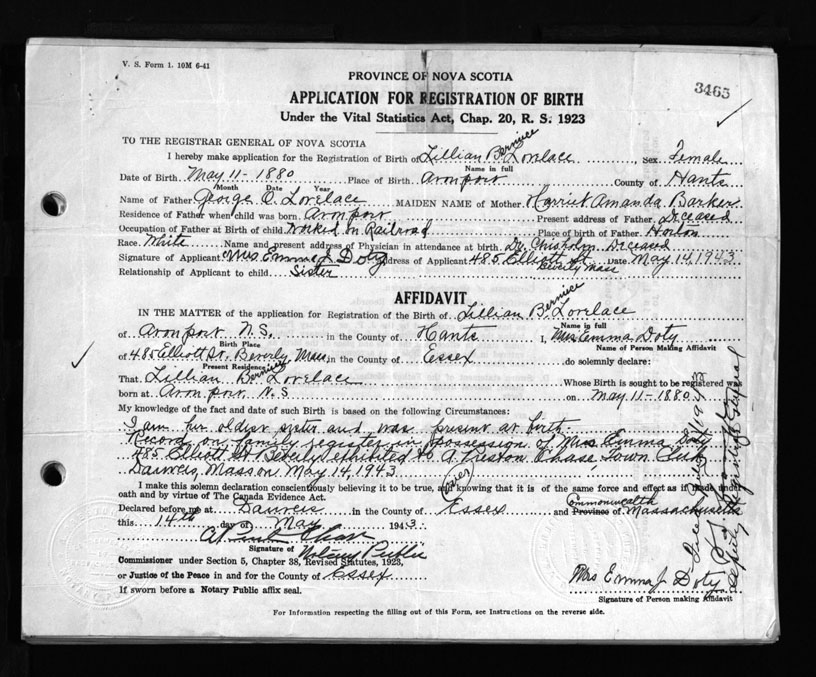 V. S. Form 1. 10M 6-41
PROVINCE OF NOVA SCOTIA
3465
APPLICATION FOR REGISTRATION OF BIRTH
Under the Vital Statistics Act, Chap. 20, R. S. 1923
TO THE REGISTRAR GENERAL OF NOVA SCOTIA
I hereby make application for the Registration of Birth of Lillian B. Bernice Lovelace Sex Female
Name in full
Date of Birth May 11 - 1880 Place of Birth Avonport County of Hants
Month Date Year
Name of Father George O. Lovelace MAIDEN NAME of Mother Harriet Amanda Barker
Residence of Father when child was born Avonport Present address of Father Deceased
Occupation of Father at Birth of child Worked on Railroad Place of birth of Father Horton
Race White Name and present address of Physician in attendance at birth Dr. Chisholm Deceased
Signature of Applicant Mrs Emma J Doty Address of Applicant 485 Elliott St Date May 14, 1943
Beverly Mass
Relationship of Applicant to child Sister
AFFIDAVIT
IN THE MATTER of the application for Registration of the Birth of Lillian B. Bernice Lovelace
Name in full
of Avonport N.S. in the County of Hants I, Mrs Emma Doty
Birth Place Name of Person Making Affidavit
of 485 Elliott St. Beverly Mass, in the County of Essex do solemnly declare:
Present Residence
That Lillian B. Bernice Lovelace Whose Birth is sought to be registered was
born at Avonport N.S on May 11 - 1880
My knowledge of the fact and date of such Birth is based on the following Circumstances:
I am her oldest sister and was present at birth.
Record on family register in possession of Mrs Emma Doty
485 Elliott St Beverly exhibited to A. Preston Chase, Town Clerk
Danvers, Mass on May 14, 1943
I make this solemn declaration conscientiously believing it to be true, and knowing that it is of the same force and effect as if made under
oath and by virtue of The Canada Evidence Act.
Declared before me at Danvers in the County of Essex and Province of Commonwealth Massachusetts
this 14th day of May 1943.
A Preston Chase
Signature of Notary Public
Commissioner under Section 5, Chapter 38, Revised Statutes, 1923,
or Justice of the Peace in and for the County of Essex
If sworn before a Notary Public affix seal.
Mrs Emma J Doty
Signature of Person making Affidavit
Deputy Registrar General
For Information respecting the filling out of this Form, see Instructions on the reverse side.